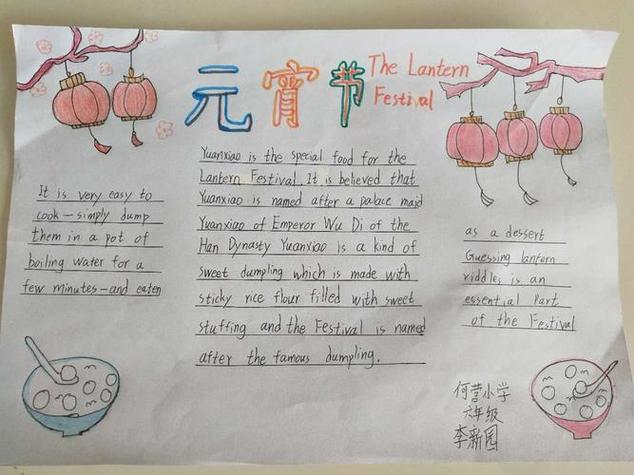 元宵节
The Lantern
Festival
Yuanxiao is the special food for the
Lantern Festival. It is believed that
Yuanxiao is named after a palace maid
Yuanxiao of Emperor Wu Di of the
Han Dynasty Yuanxiao is a kind of
sweet dumpling which is made with
sticky rice flour filled with sweet
stuffing and the Festival is named
after the famous dumpling.
It is very easy to
cook—simply dump
them in a pot of
boiling water for a
few minutes—and eaten
as a dessert
Guessing lantern
riddles is an
essential Part
of the Festival
何营小学
六年级
李新园